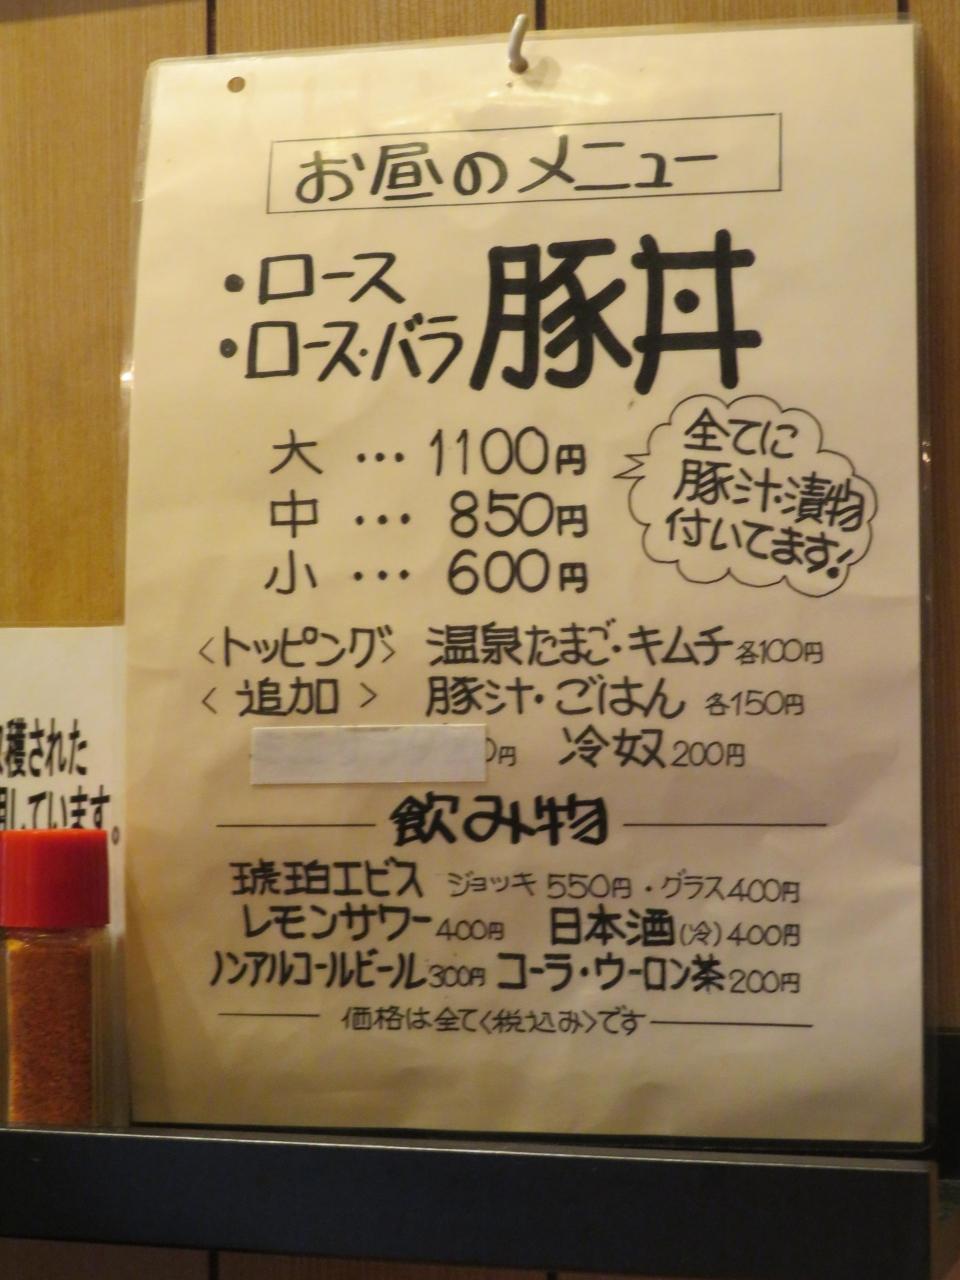 お昼のメニュー
・ロース
・ロース・バラ
豚丼
大 … 1100円
中 … 850円
小 … 600円
全てに
豚汁・漬物
付いてます!
<トッピング> 温泉たまご・キムチ各100円
<追加> 豚汁・ごはん 各150円
0円 冷奴200円
飲み物
琥珀エビス ジョッキ550円・グラス400円
レモンサワー400円 日本酒(冷)400円
ノンアルコールビール300円 コーラ・ウーロン茶200円
価格は全て<税込み>です
穫された
しています。